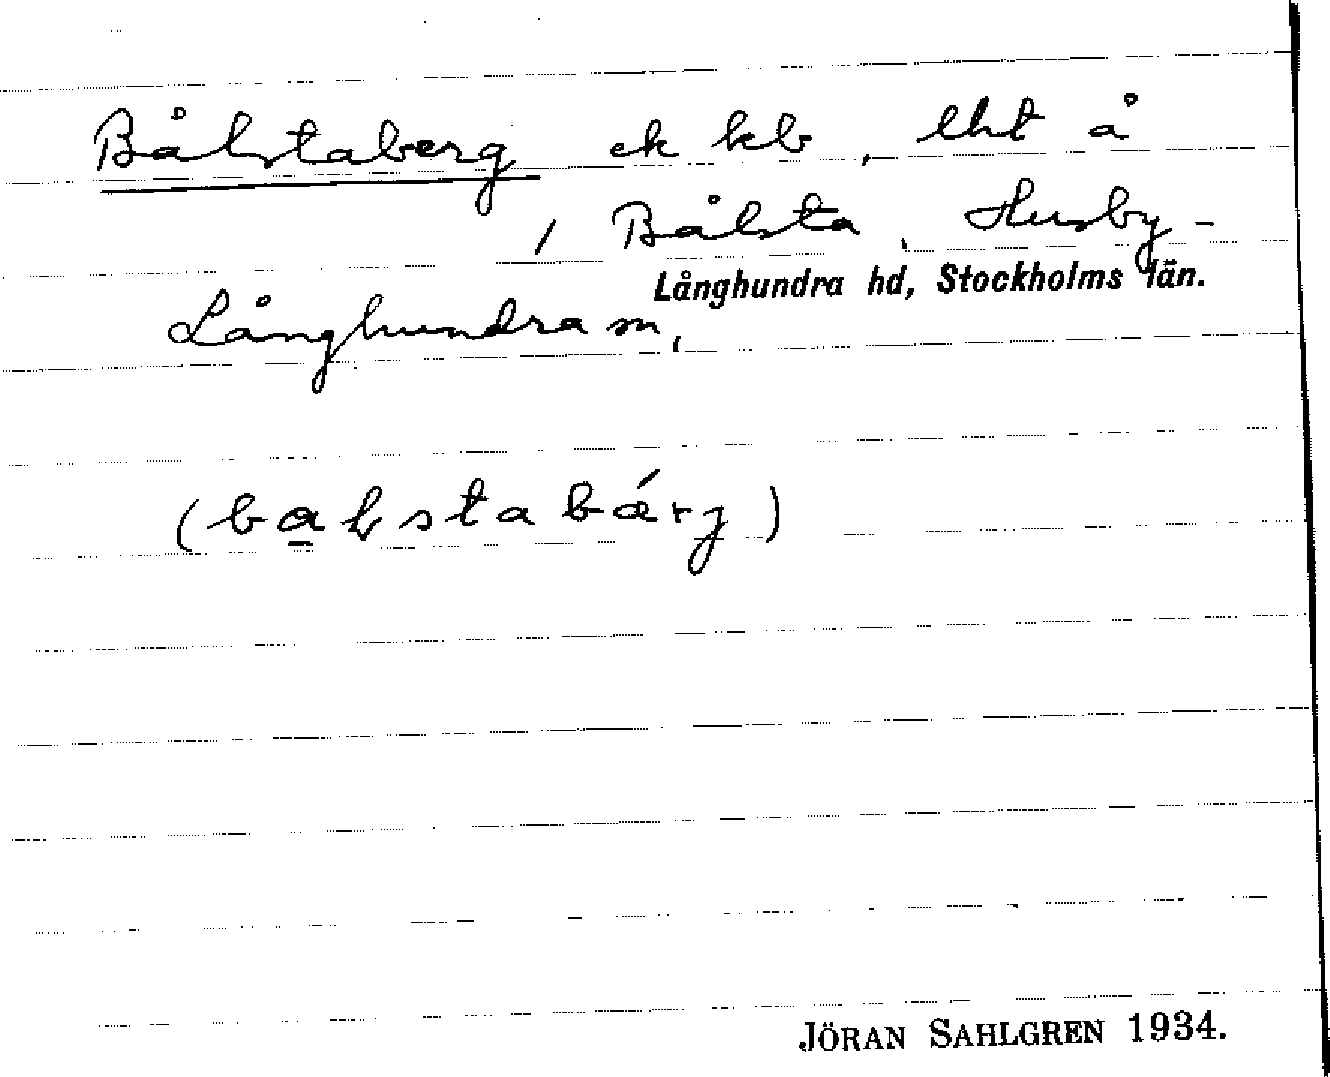 Bålstaberg ek kb, lht å
1 Bålsta, Husby-
Långhundra hd, Stockholms län.
Långhundra sn,
JÖRAN SAHLGREN 1934.